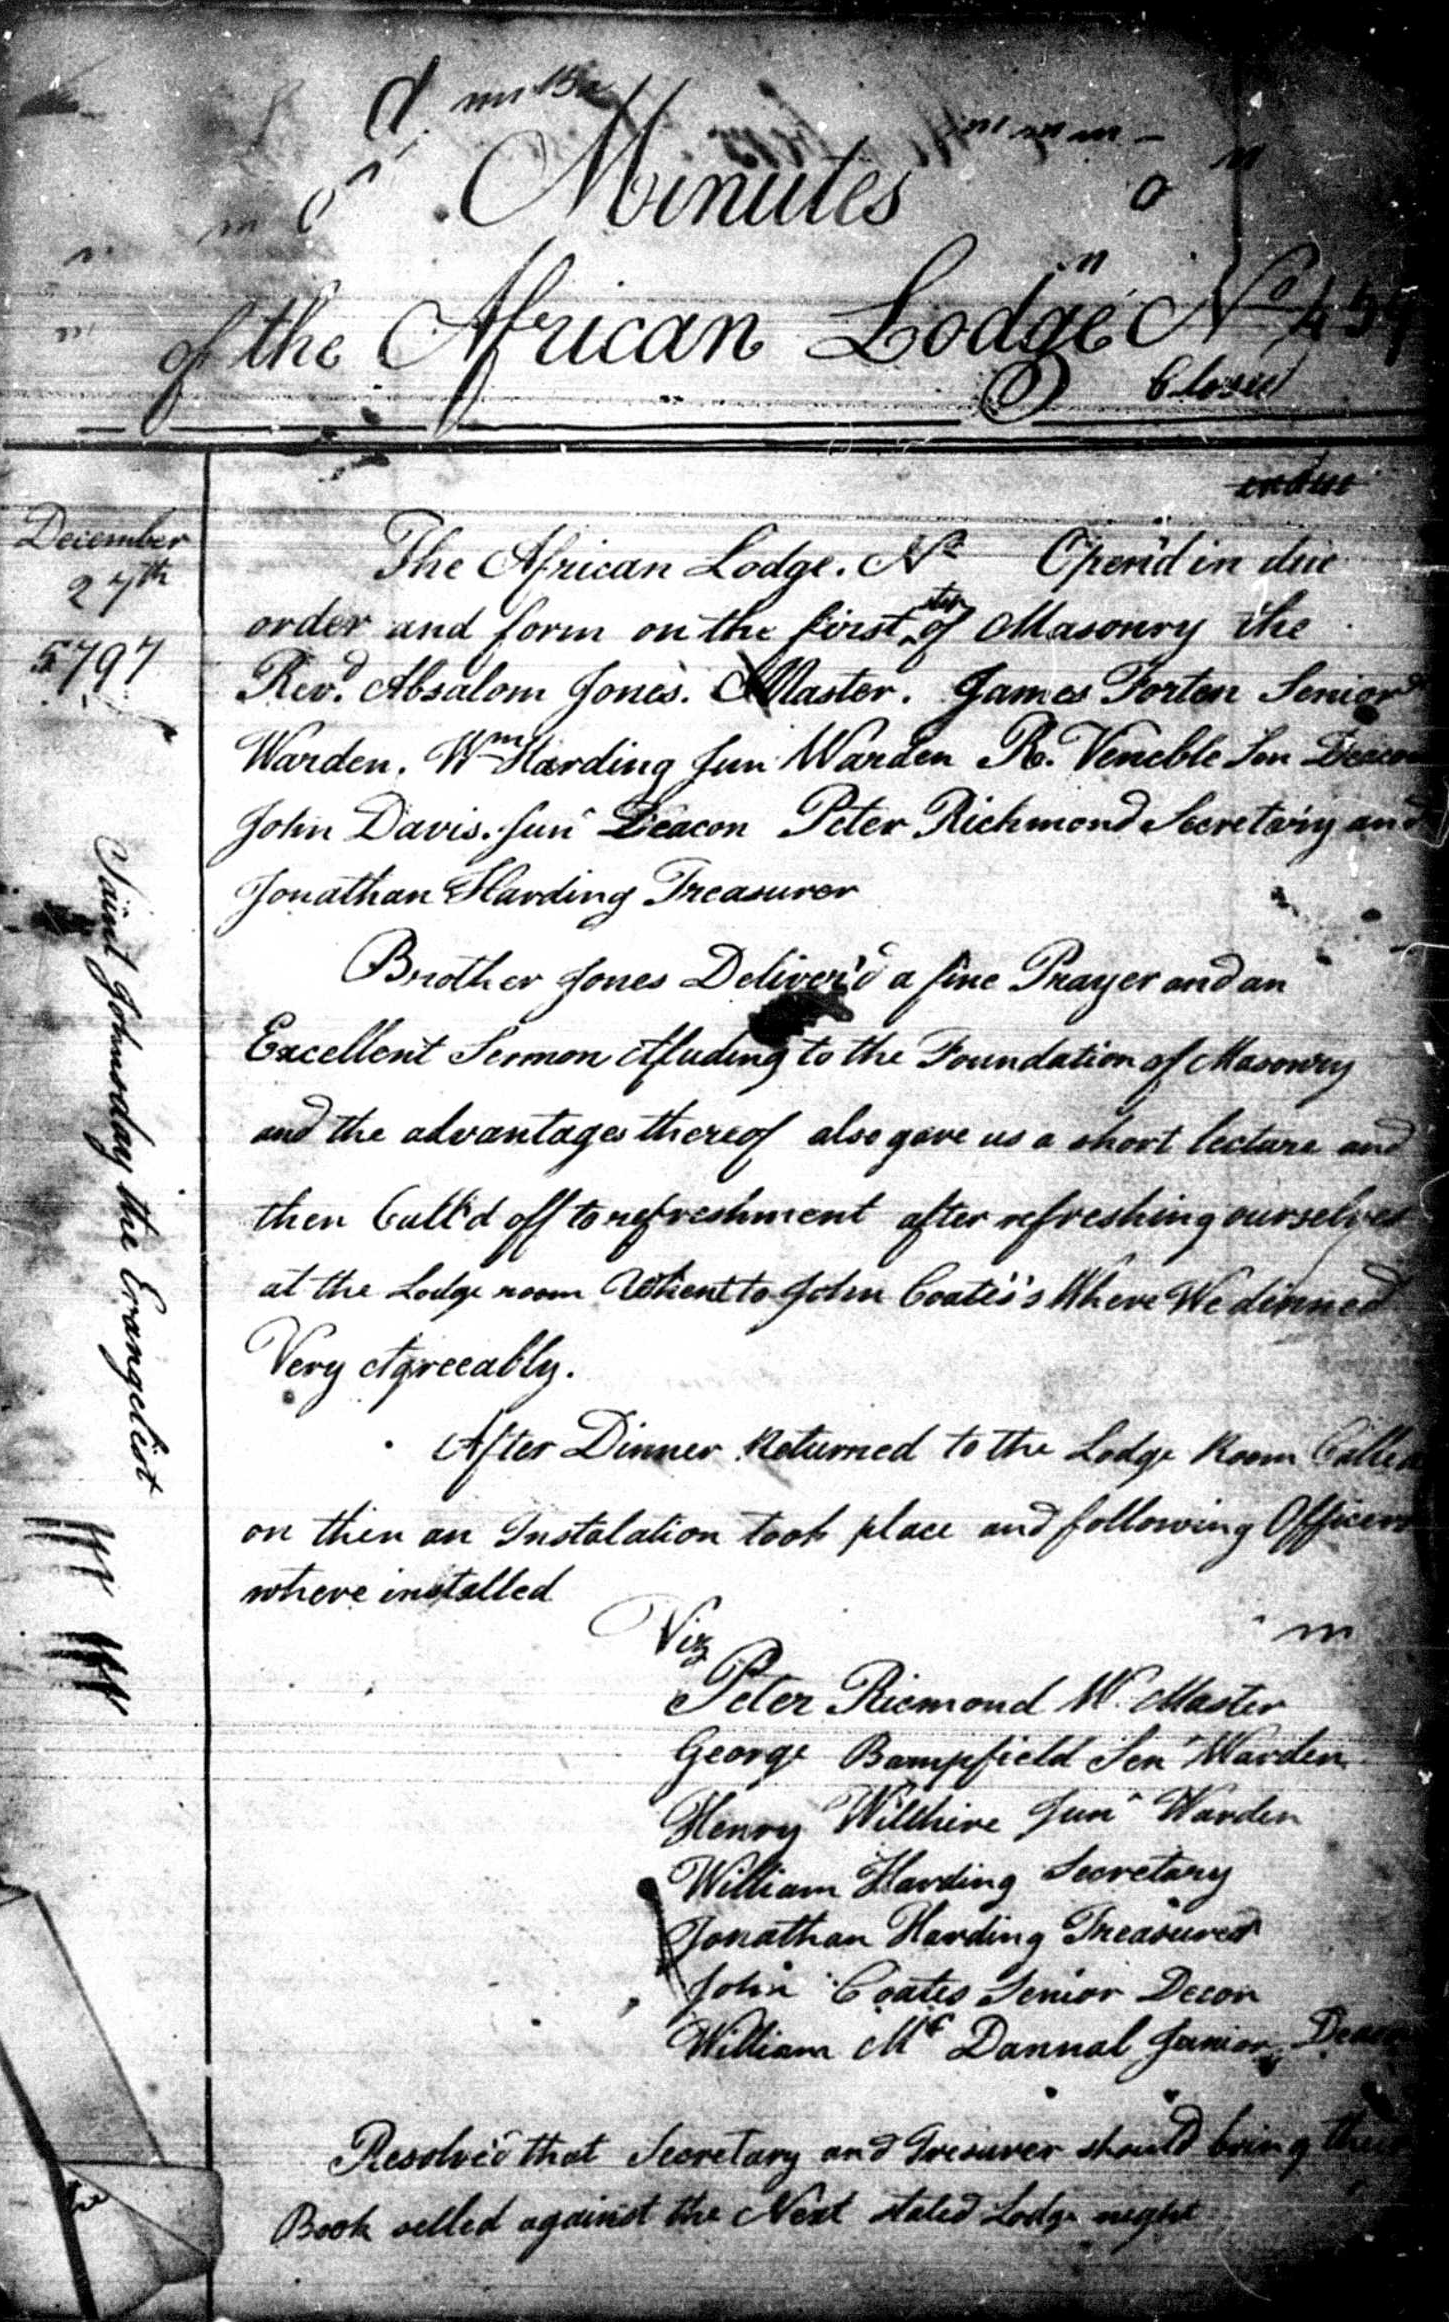 Minutes
of the African Lodge No 459
December
27th
5797
Saint Johnsday the Evangelist
The African Lodge. No Open'd in due
order and form on the first step of Masonry the
Revd. Absalom Jones. Master. James Forten Senior
Warden. Wm Harding Jun Warden R. Veneble Sen Deacon
John Davis. Junr Deacon Peter Richmond Secretary and
Jonathan Harding Treasurer
Brother Jones Deliver'd a fine Prayer and an
Excellent Sermon Aluding to the Foundation of Masonry
and the advantages thereof also gave us a short lecture and
then Call'd off to refreshment after refreshing ourselves
at the Lodge room Whent to John Coates's Where We dinned
Very Agreeably.
After Dinner Returned to the Lodge Room Called
on then an Instalation took place and following Officers
where installed
Viz
Peter Ricmond W. Master
George Bampfield Senr Warden
Henry Wilthire Junr Warden
William Harding Secretary
Jonathan Harding Treasurer
John Coates Senior Decon
William Mc Dannal Junior Deacon
Resolved that Secretary and Tresurer should bring their
Book selled against the Next stated Lodge night